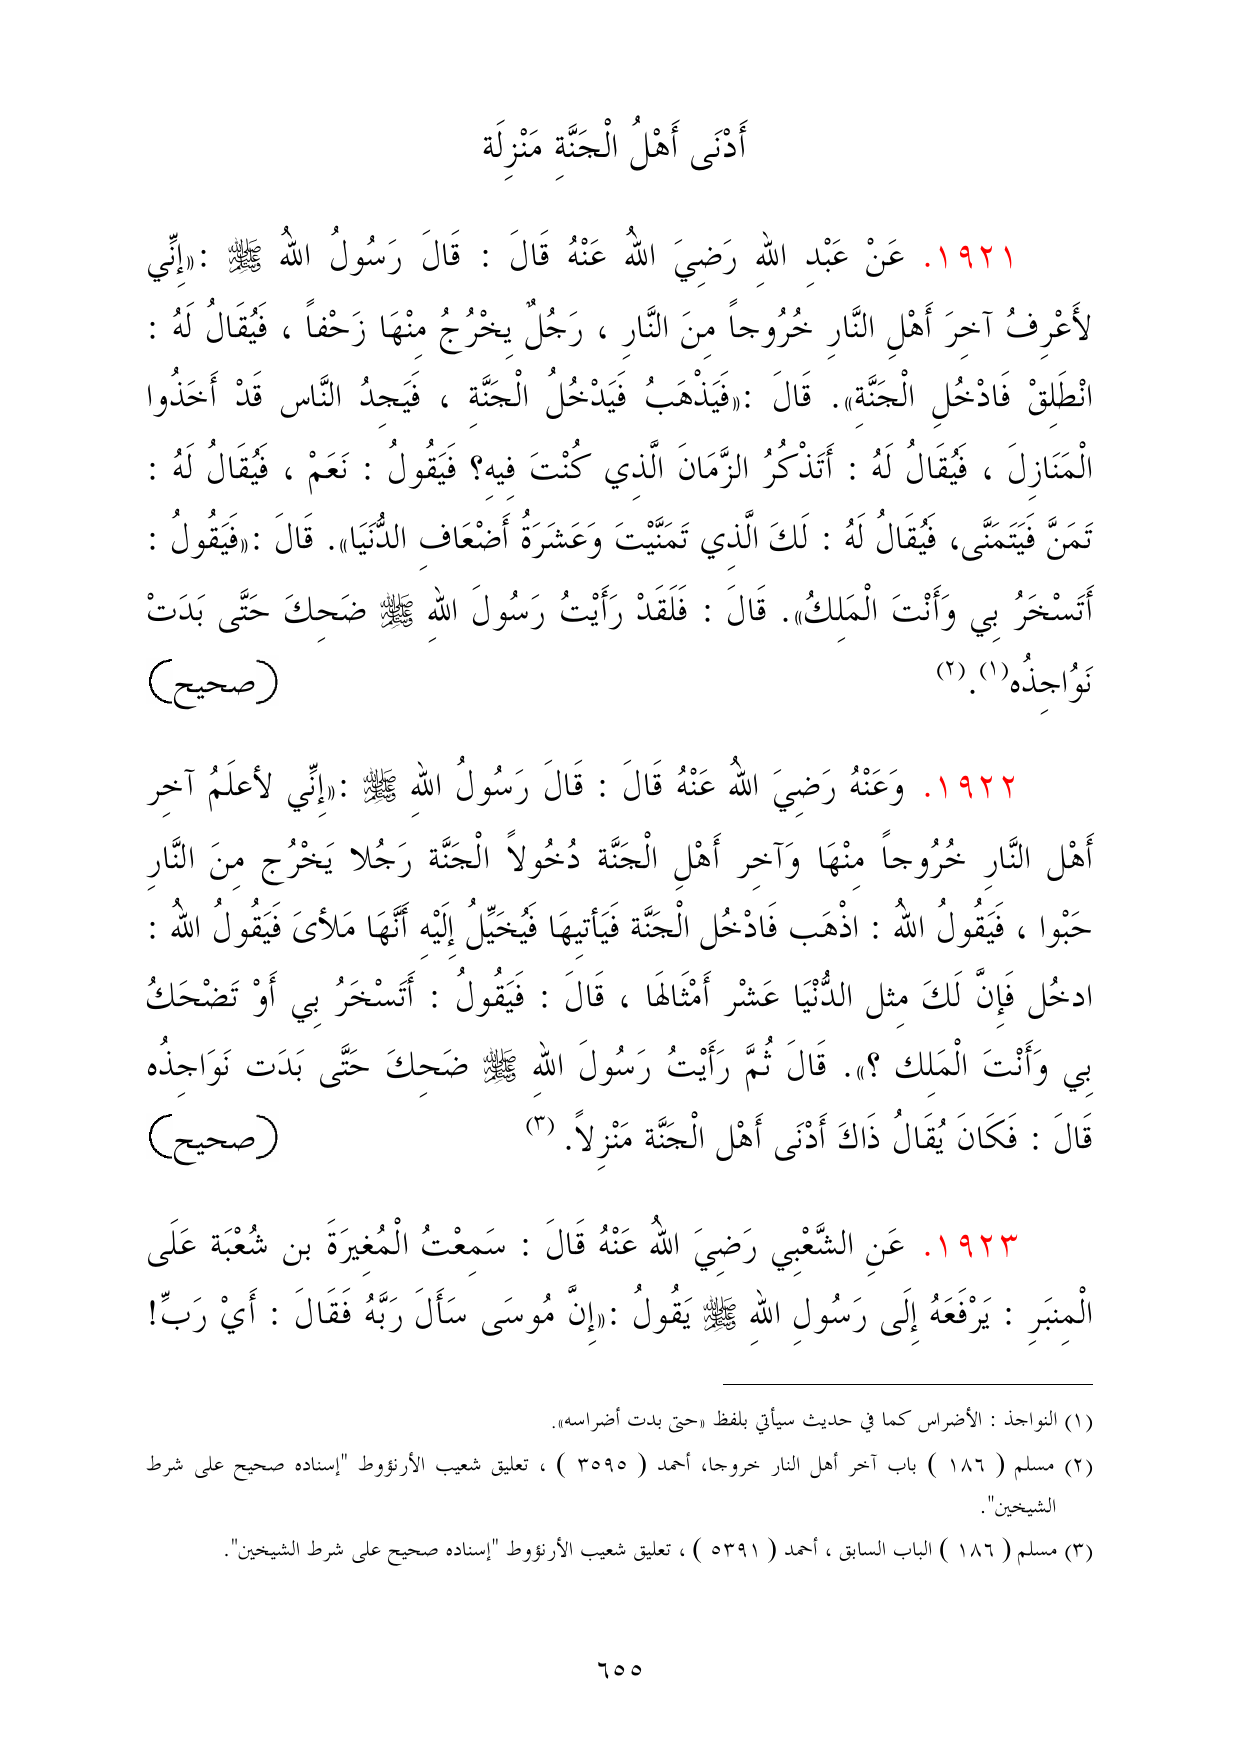 أَدْنَى أَهْلُ الْجَنَّةِ مَنْزِلَة
١٩٢١. عَنْ عَبْدِ اللهِ رَضِيَ اللهُ عَنْهُ قَالَ : قَالَ رَسُولُ اللهُ ﷺ :«إِنِّي
لأَعْرِفُ آخرَ أَهْلِ النَّارِ خُرُوجاً مِنَ النَّارِ ، رَجُلٌ يخْرُجُ مِنْهَا زَحْفاً ، فَيُقَالُ لَهُ :
انْطَلِقْ فَادْخُلِ الْجَنَّةِ». قَالَ :«فَيَذْهَبُ فَيَدْخُلُ الْجَنَّةِ ، فَيَجِدُ النَّاس قَدْ أَخَذُوا
الْمَنَازِلَ ، فَيُقَالُ لَهُ : أَتَذْكُرُ الزَّمَانَ الَّذِي كُنْتَ فِيهِ؟ فَيَقُولُ : نَعَمْ ، فَيُقَالُ لَهُ :
تَمَنَّ فَيَتَمَنَّى، فَيُقَالُ لَهُ : لَكَ الَّذِي تَمَنَّيْتَ وَعَشَرَةُ أَضْعَافِ الدُّنَيَا». قَالَ :«فَيَقُولُ :
أَتَسْخَرُ بِي وَأَنْتَ الْمَلِكُ». قَالَ : فَلَقَدْ رَأَيْتُ رَسُولَ اللهِ ﷺ ضَحِكَ حَتَّى بَدَتْ
نَوُاجِذُه(١).(٢) (صحيح)
١٩٢٢. وَعَنْهُ رَضِيَ اللهُ عَنْهُ قَالَ : قَالَ رَسُولُ اللهِ ﷺ :«إِنِّي لأعلَمُ آخرِ
أَهْل النَّارِ خُرُوجاً مِنْهَا وَآخرِ أَهْلِ الْجَنَّة دُخُولاً الْجَنَّة رَجُلا يَخْرُج مِنَ النَّارِ
حَبْوا ، فَيَقُولُ اللهُ : اذْهَب فَادْخُل الْجَنَّة فَيَأتيهَا فَيُخَيِّلُ إِلَيْهِ أَنَّهَا مَلأىَ فَيَقُولُ اللهُ :
ادخُل فَإِنَّ لَكَ مِثل الدُّنْيَا عَشْر أَمْثَالهَا ، قَالَ : فَيَقُولُ : أَتَسْخَرُ بِي أَوْ تَضْحَكُ
بِي وَأَنْتَ الْمَلِك ؟». قَالَ ثُمَّ رَأَيْتُ رَسُولَ اللهِ ﷺ ضَحِكَ حَتَّى بَدَت نَوَاجِذُه
قَالَ : فَكَانَ يُقَالُ ذَاكَ أَدْنَى أَهْل الْجَنَّة مَنْزِلاً. (٣) (صحيح)
١٩٢٣. عَنِ الشَّعْبِي رَضِيَ اللهُ عَنْهُ قَالَ : سَمِعْتُ الْمُغِيرَةَ بن شُعْبَة عَلَى
الْمِنبَرِ : يَرْفَعَهُ إِلَى رَسُولِ اللهِ ﷺ يَقُولُ :«إِنَّ مُوسَى سَأَلَ رَبَّهُ فَقَالَ : أَيْ رَبِّ!
(١) النواجذ : الأضراس كما في حديث سيأتي بلفظ «حتى بدت أضراسه».
(٢) مسلم ( ١٨٦ ) باب آخر أهل النار خروجا، أحمد ( ٣٥٩٥ ) ، تعليق شعيب الأرنؤوط "إسناده صحيح على شرط
الشيخين".
(٣) مسلم ( ١٨٦ ) الباب السابق ، أحمد ( ٥٣٩١ ) ، تعليق شعيب الأرنؤوط "إسناده صحيح على شرط الشيخين".
٦٥٥